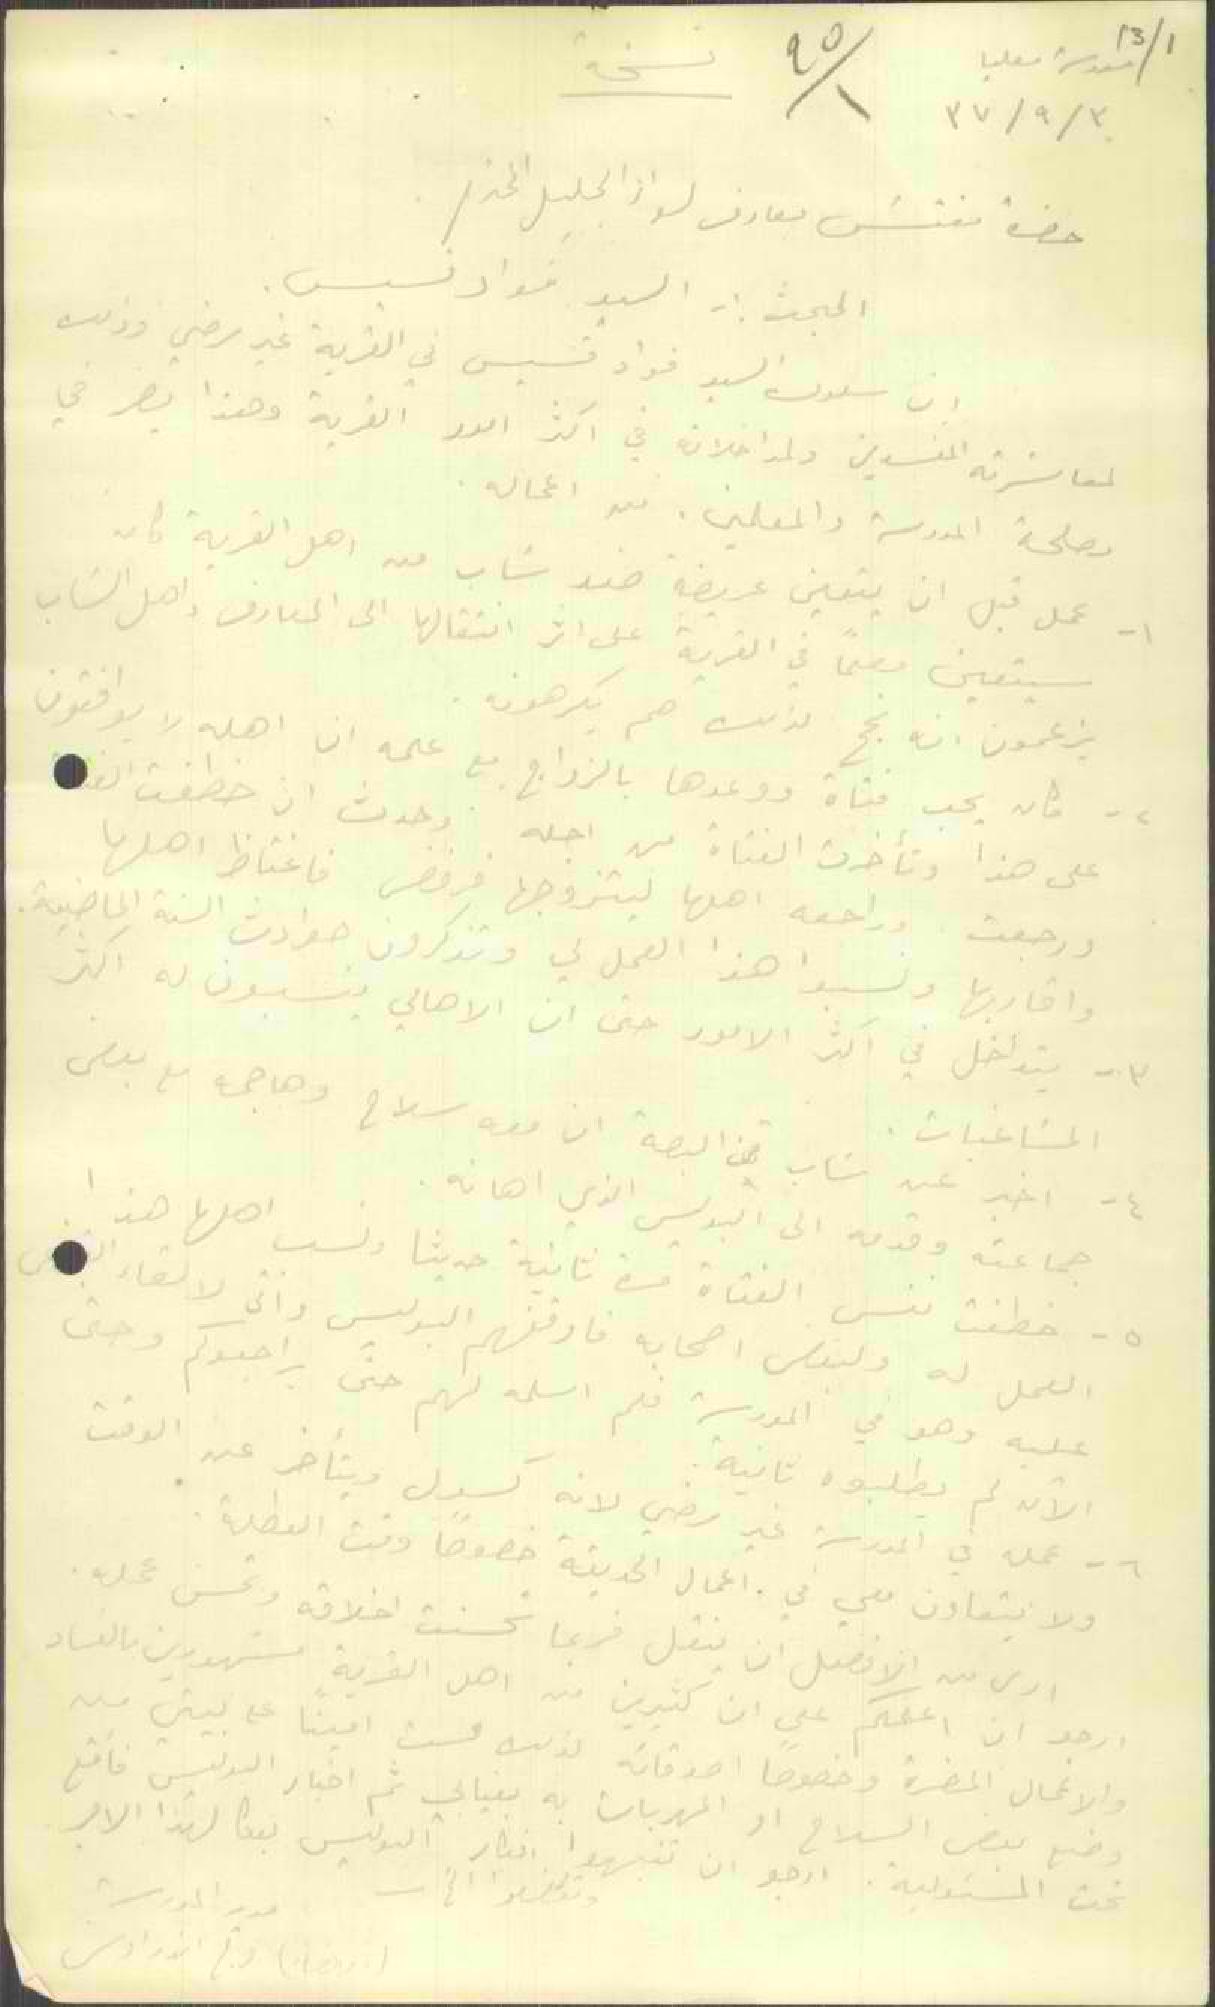 13/1
مدرسة معليا
٩٥/١
نسخة
٣٧/٩/٣٠
حضرة مفتش معارف لواء الجليل المحترم
المبحث :- السيد فؤاد قسيس .
ان سلوك السيد فؤاد قسيس في القرية غير مرضي وذلك
لمعاشرته المفسدين ولمداخلاته في اكثر امور القرية وهذا يضر في
مصلحة المدرسة والمعلمين . من اعماله .
١- عمل قبل ان يتعين عريضة ضد شاب من اهل القرية كان
سيتعين معلماً في القرية على اثر انتقالها الى المعارف واهل الشاب
يزعمون انه نجح لذلك هم يكرهونه .
٢- كان يحب فتاة ووعدها بالزواج مع علمه ان اهله لا يوافقون
على هذا وتأخرت الفتاة من اجله . وحدث ان خطفت
ورجعت . وراجعه اهلها ليتزوجها فرفض فاغتاظ اهلها
واقاربها ونسبوا هذا العمل لي وتذكرون حوادث السنة الماضية .
٣- يتداخل في اكثر الامور حتى ان الاهالي ينسبون له اكثر
المشاغبات .
٤- اخبر عن شاب من البصة ان معه سلاح وهاجمه مع بعض
جماعته وقدمه الى البوليس الذي اهانه .
٥- خطفت نفس الفتاة مرة ثانية حديثا ونسب اهلها هذا
العمل له ولبعض اصحابه فاوقفهم البوليس واتى لالقاء القبض
عليه وهو في المدرسة فلم اسلمه لهم حتى يراجعوكم وحتى
الآن لم يطلبوه ثانية .
٦- عمله في المدرسة غير مرضي لانه كسول ويتأخر عن الوقت
ولا يتعاون معي في اعمال الحديقة خصوصاً وقت العطلة .
ارى من الافضل ان ينقل فربما تحسنت اخلاقه وتحسن عمله .
ارجو ان اعلمكم على ان كثيرين من اهل القرية مشهورين بالفساد
والاعمال المضرة وخصوصا اصدقائه لذلك لست امينا على بيتي من
وضع بعض السلاح او المهربات به بغيابي ثم اخبار البوليس فأقع
تحت المسئولية . ارجو ان تنبهوا افكار البوليس بعكا لهذا الامر
وتفضلوا الخ
مدير المدرسة
(امضاء)